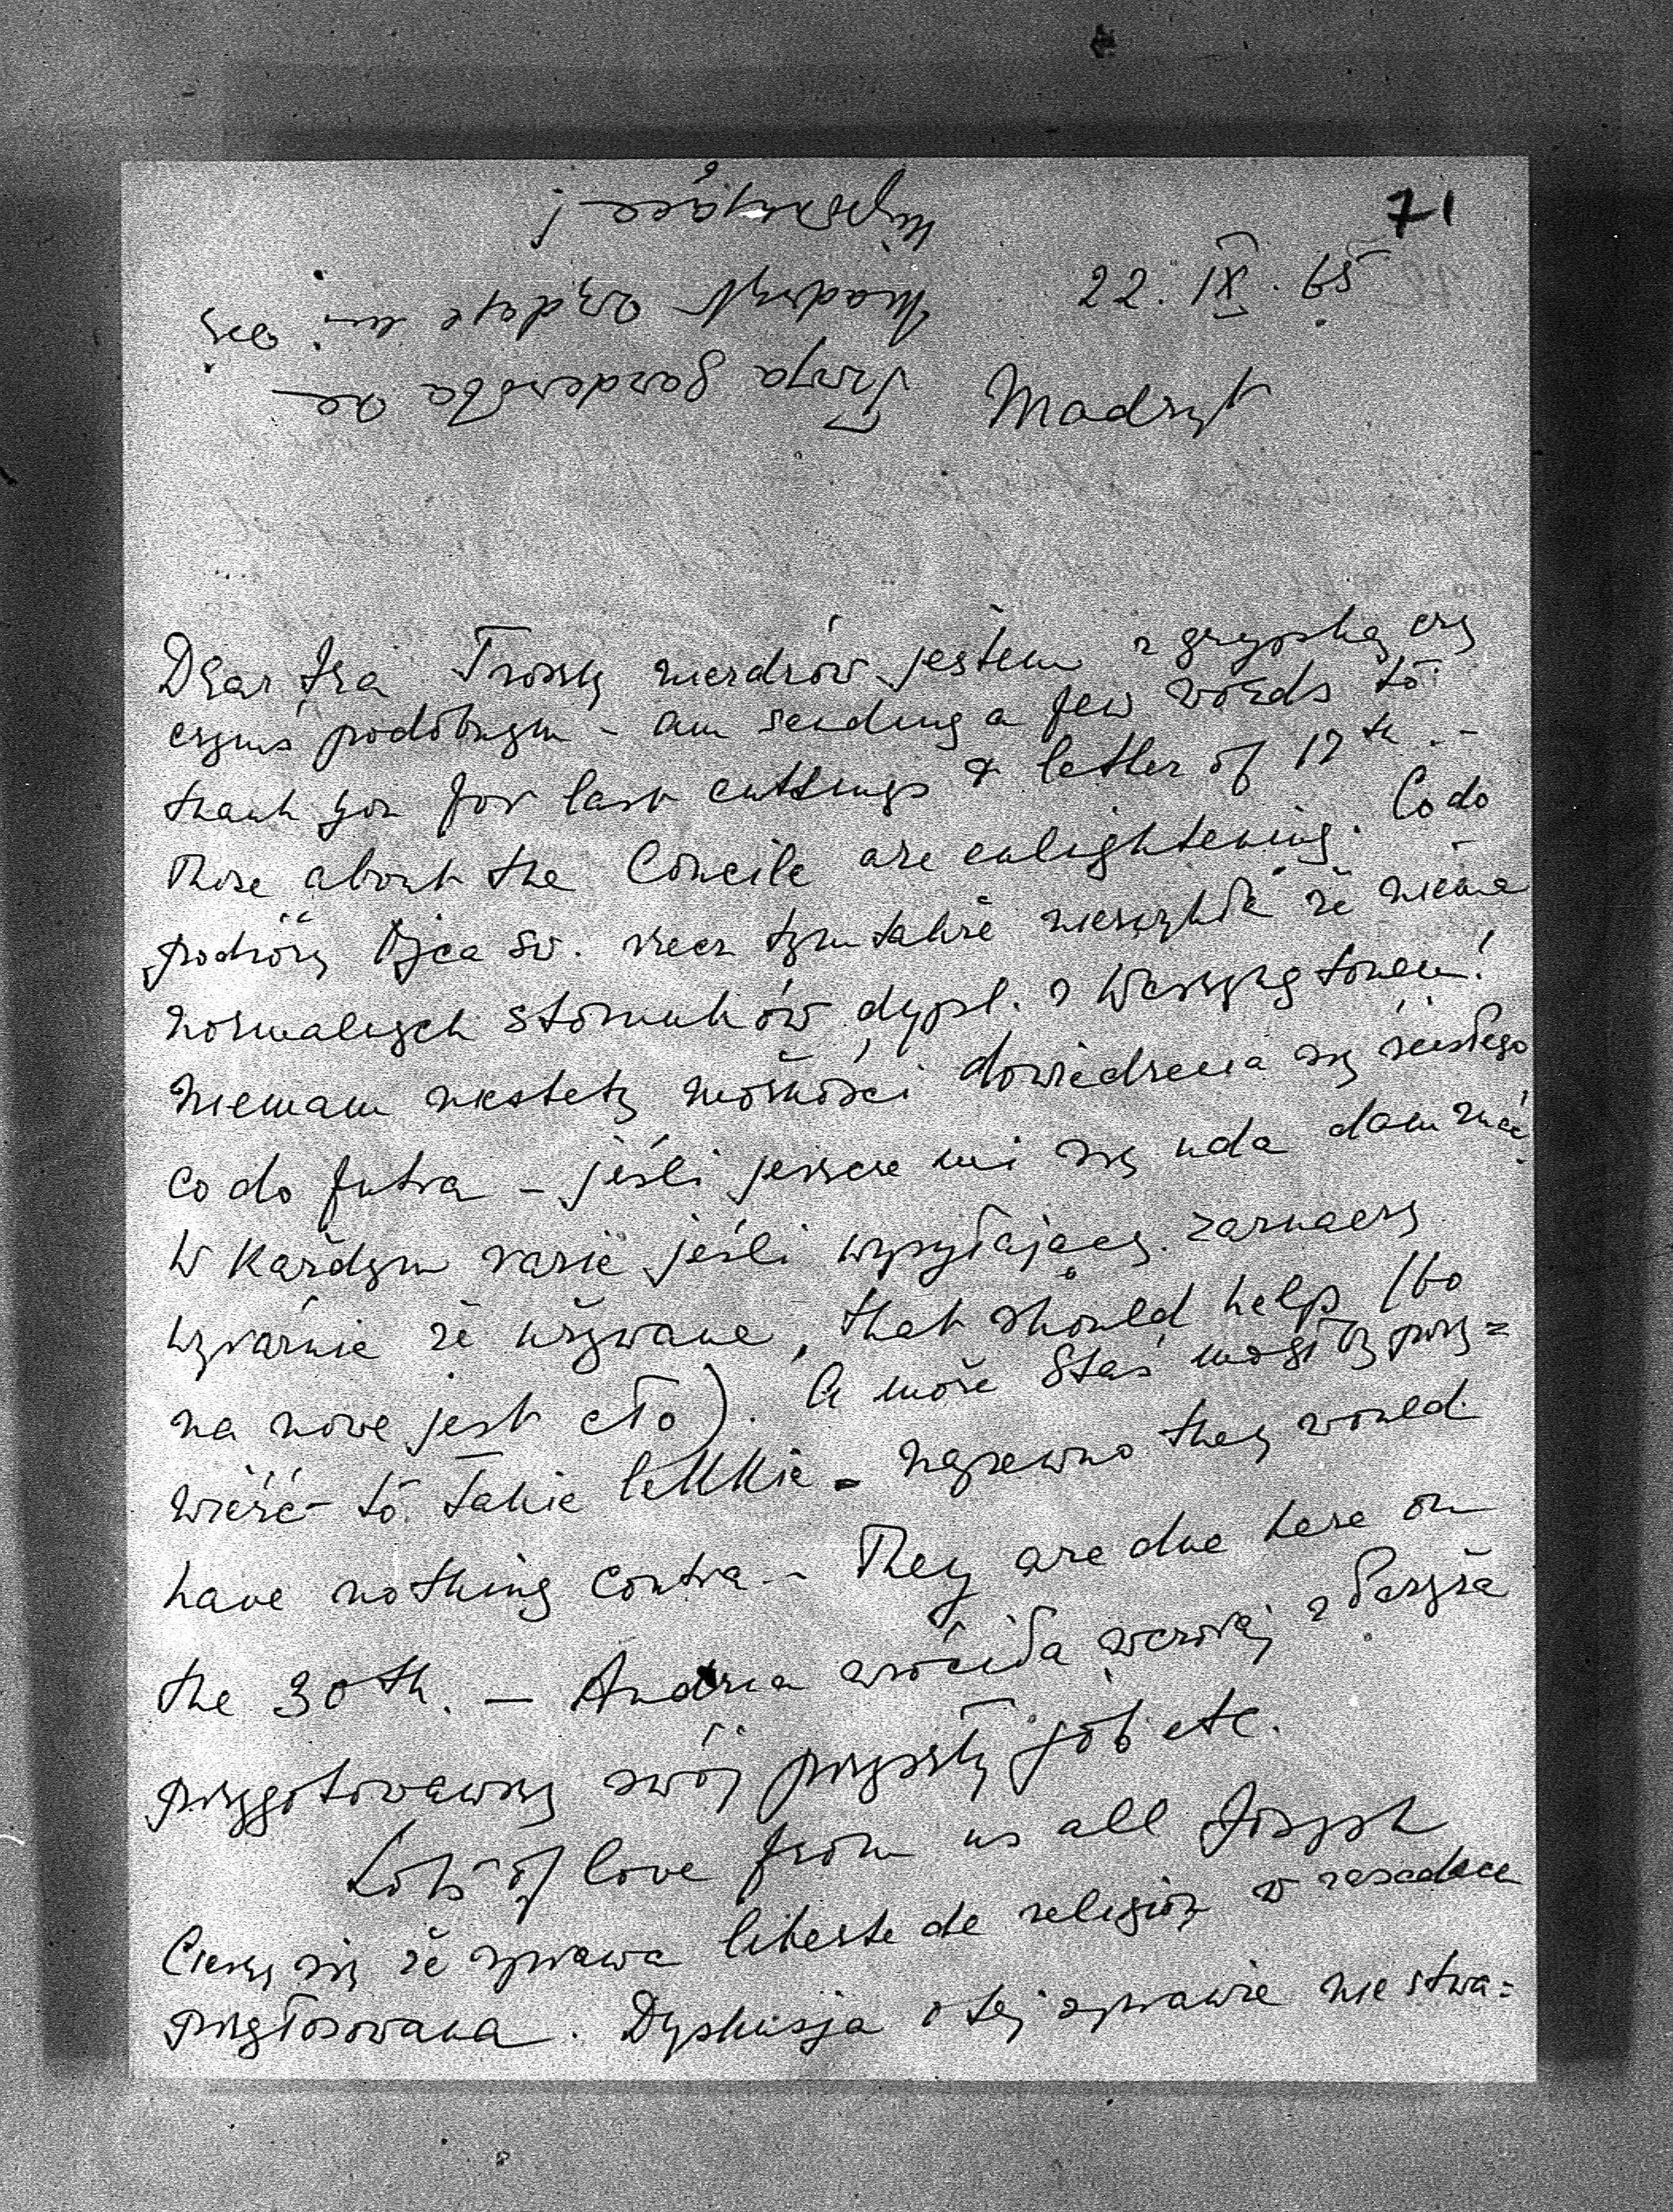 71
22. IX. 65
Madryt
Dear Iza Troszkę niezdrów jestem z grypką czy
czymś podobnym - am sending a few words to
thank you for last cuttings & letter of 17th. -
Those about the Concile are enlightening. Co do
podróży Ojca Św. rzecz tym także niezwykła że niema
normalnych stosunków dypl. z Waszyngtonem!
Niemam niestety możności dowiedzenia się ścisłego
co do futra - jeśli jeszcze mi się uda dam znać
W każdym razie jeśli wysyłający zaznaczy
wyraźnie że używane, that should help (bo
na nowe jest cło). A może Staś mógłby przy=
wieść to takie lekkie - napewno they would
have nothing contra - They are due here on
the 30th. - Andrzia wróciła wczoraj z Paryża
przygotowawszy swój przyszły job etc.
Lots of love from us all Joseph
Cieszę się że sprawa liberte de religion w zasadzie
przegłosowana. Dyskusja o tej sprawie nie stwa=
Twja garderoba ze
wydaje mi się
wyjątkowe!